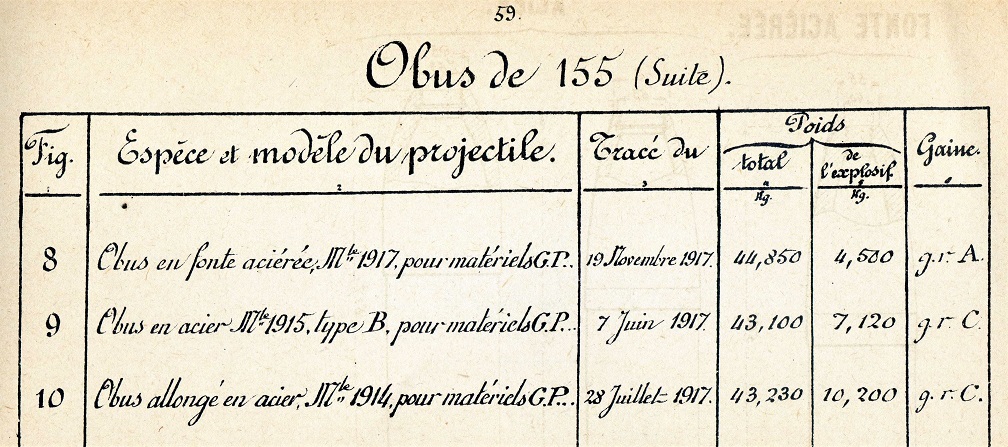 59.
Obus de 155 (Suite).
Fig. Espèce et modèle du projectile. Tracé du Poids Gaine.
total de l'explosif
1 2 3 4 5 6
Kg. Kg.
8 Obus en fonte aciérée, Mle 1917, pour matériels G.P.. 19 Novembre 1917. 44,850 4,500 g.r. A.
9 Obus en acier Mle 1915, type B, pour matériels G.P... 7 Juin 1917. 43,100 7,120 g.r. C.
10 Obus allongé en acier, Mle 1914, pour matériels G.P... 28 Juillet 1917. 43,230 10,200 g.r. C.